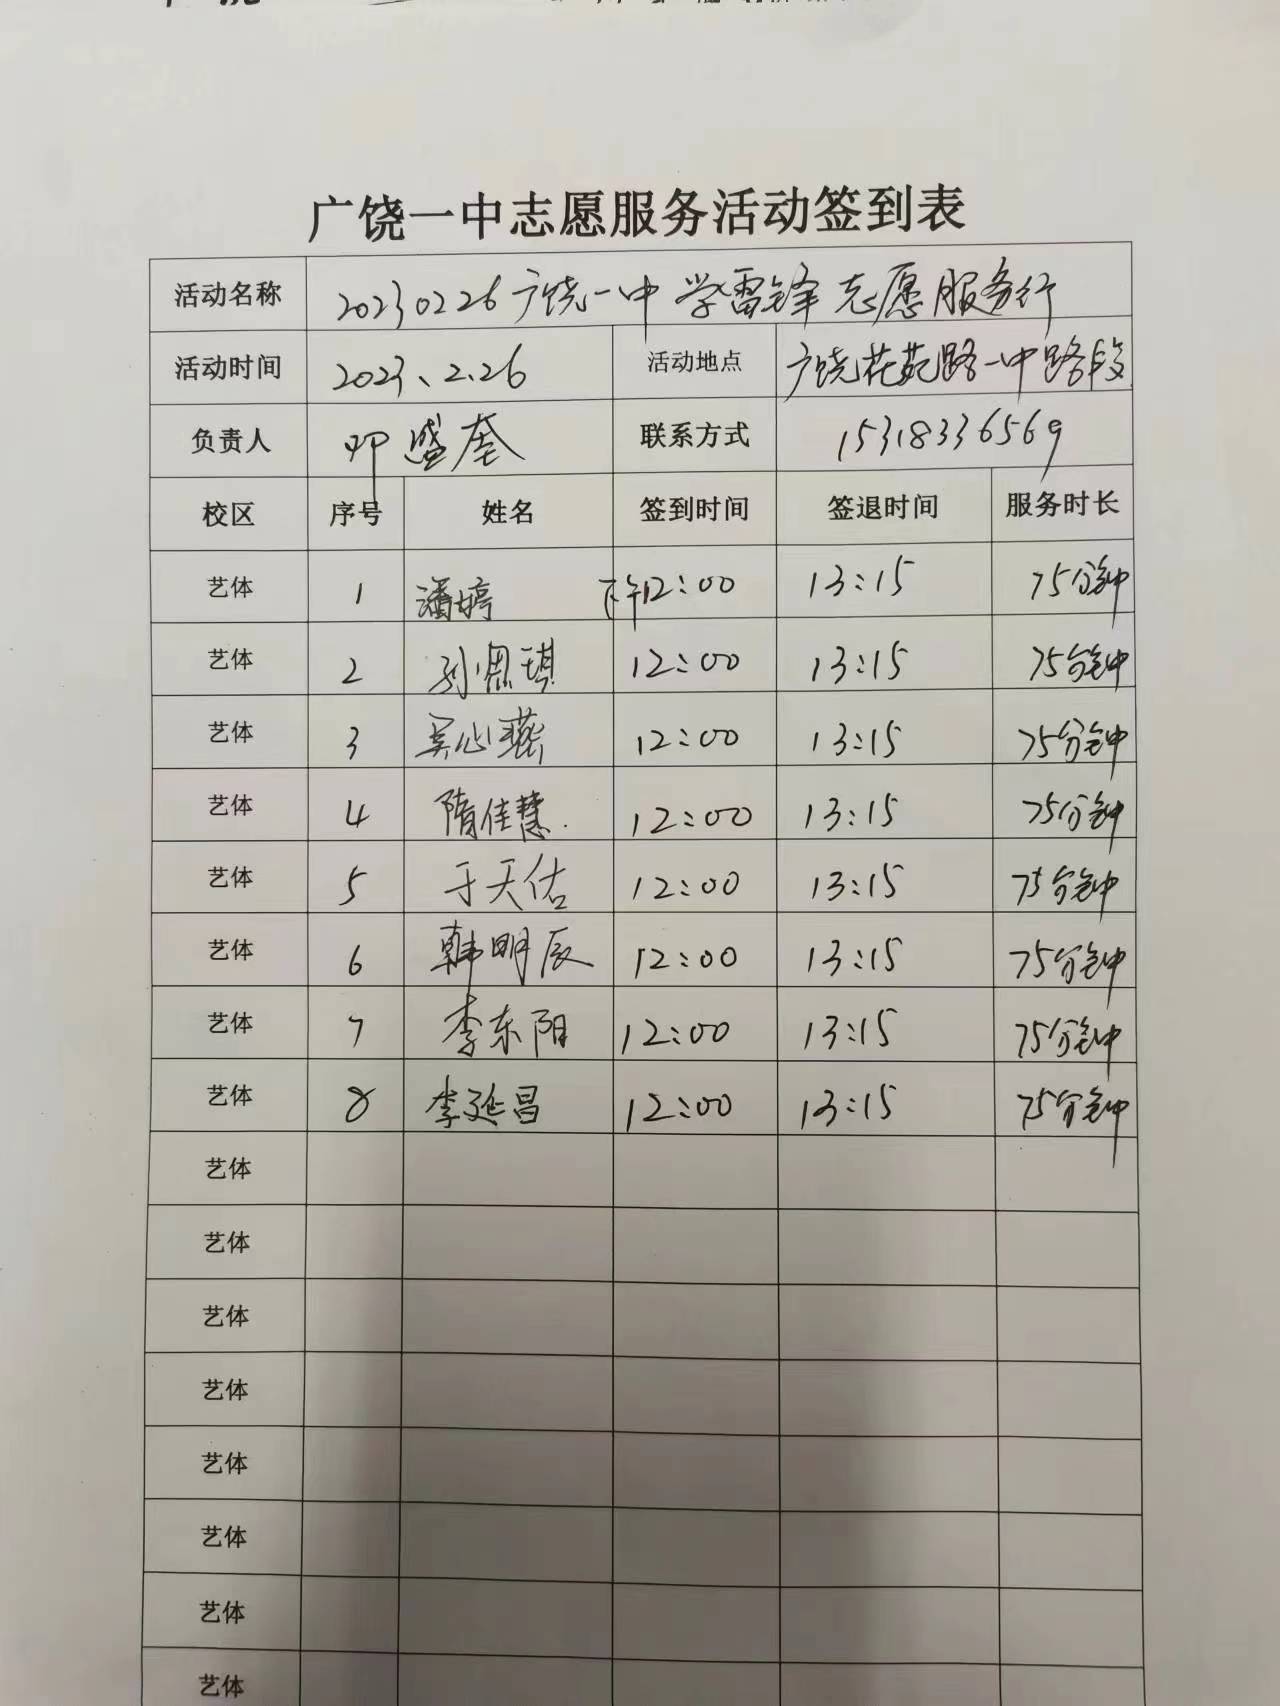 广饶一中志愿服务活动签到表
活动名称 20230226广饶一中 学雷锋志愿服务行
活动时间 2023、2.26 活动地点 广饶花苑路一中路段
负责人 盛奎 联系方式 15318336569
校区 序号 姓名 签到时间 签退时间 服务时长
艺体 1 潘婷 下午12:00 13:15 75分钟
艺体 2 孙思琪 12:00 13:15 75分钟
艺体 3 吴心燕 12:00 13:15 75分钟
艺体 4 隋佳慧. 12:00 13:15 75分钟
艺体 5 于天佑 12:00 13:15 75分钟
艺体 6 韩明辰 12:00 13:15 75分钟
艺体 7 李东阳 12:00 13:15 75分钟
艺体 8 李延昌 12:00 13:15 75分钟
艺体
艺体
艺体
艺体
艺体
艺体
艺体
艺体